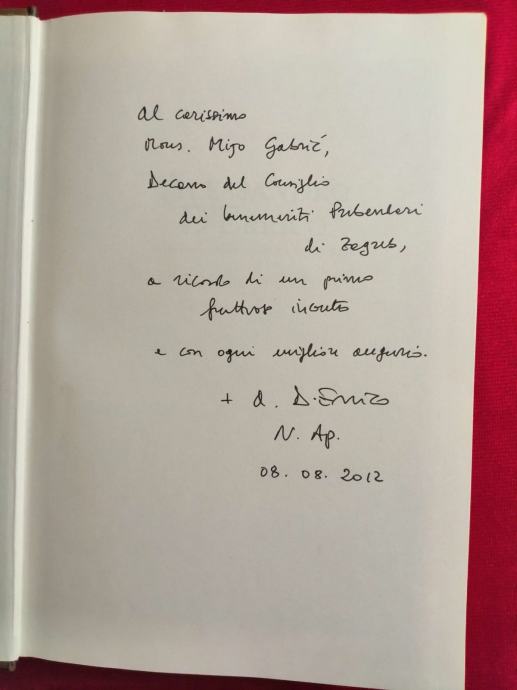 Al carissimo
Mons. Mijo Gabrić,
Decano del Consiglio
dei benemeriti Prebendari
di Zagreb,
a ricordo di un primo
fruttuoso incontro
e con ogni migliore augurio.
+ A. D'Errico
N. Ap.
08. 08. 2012